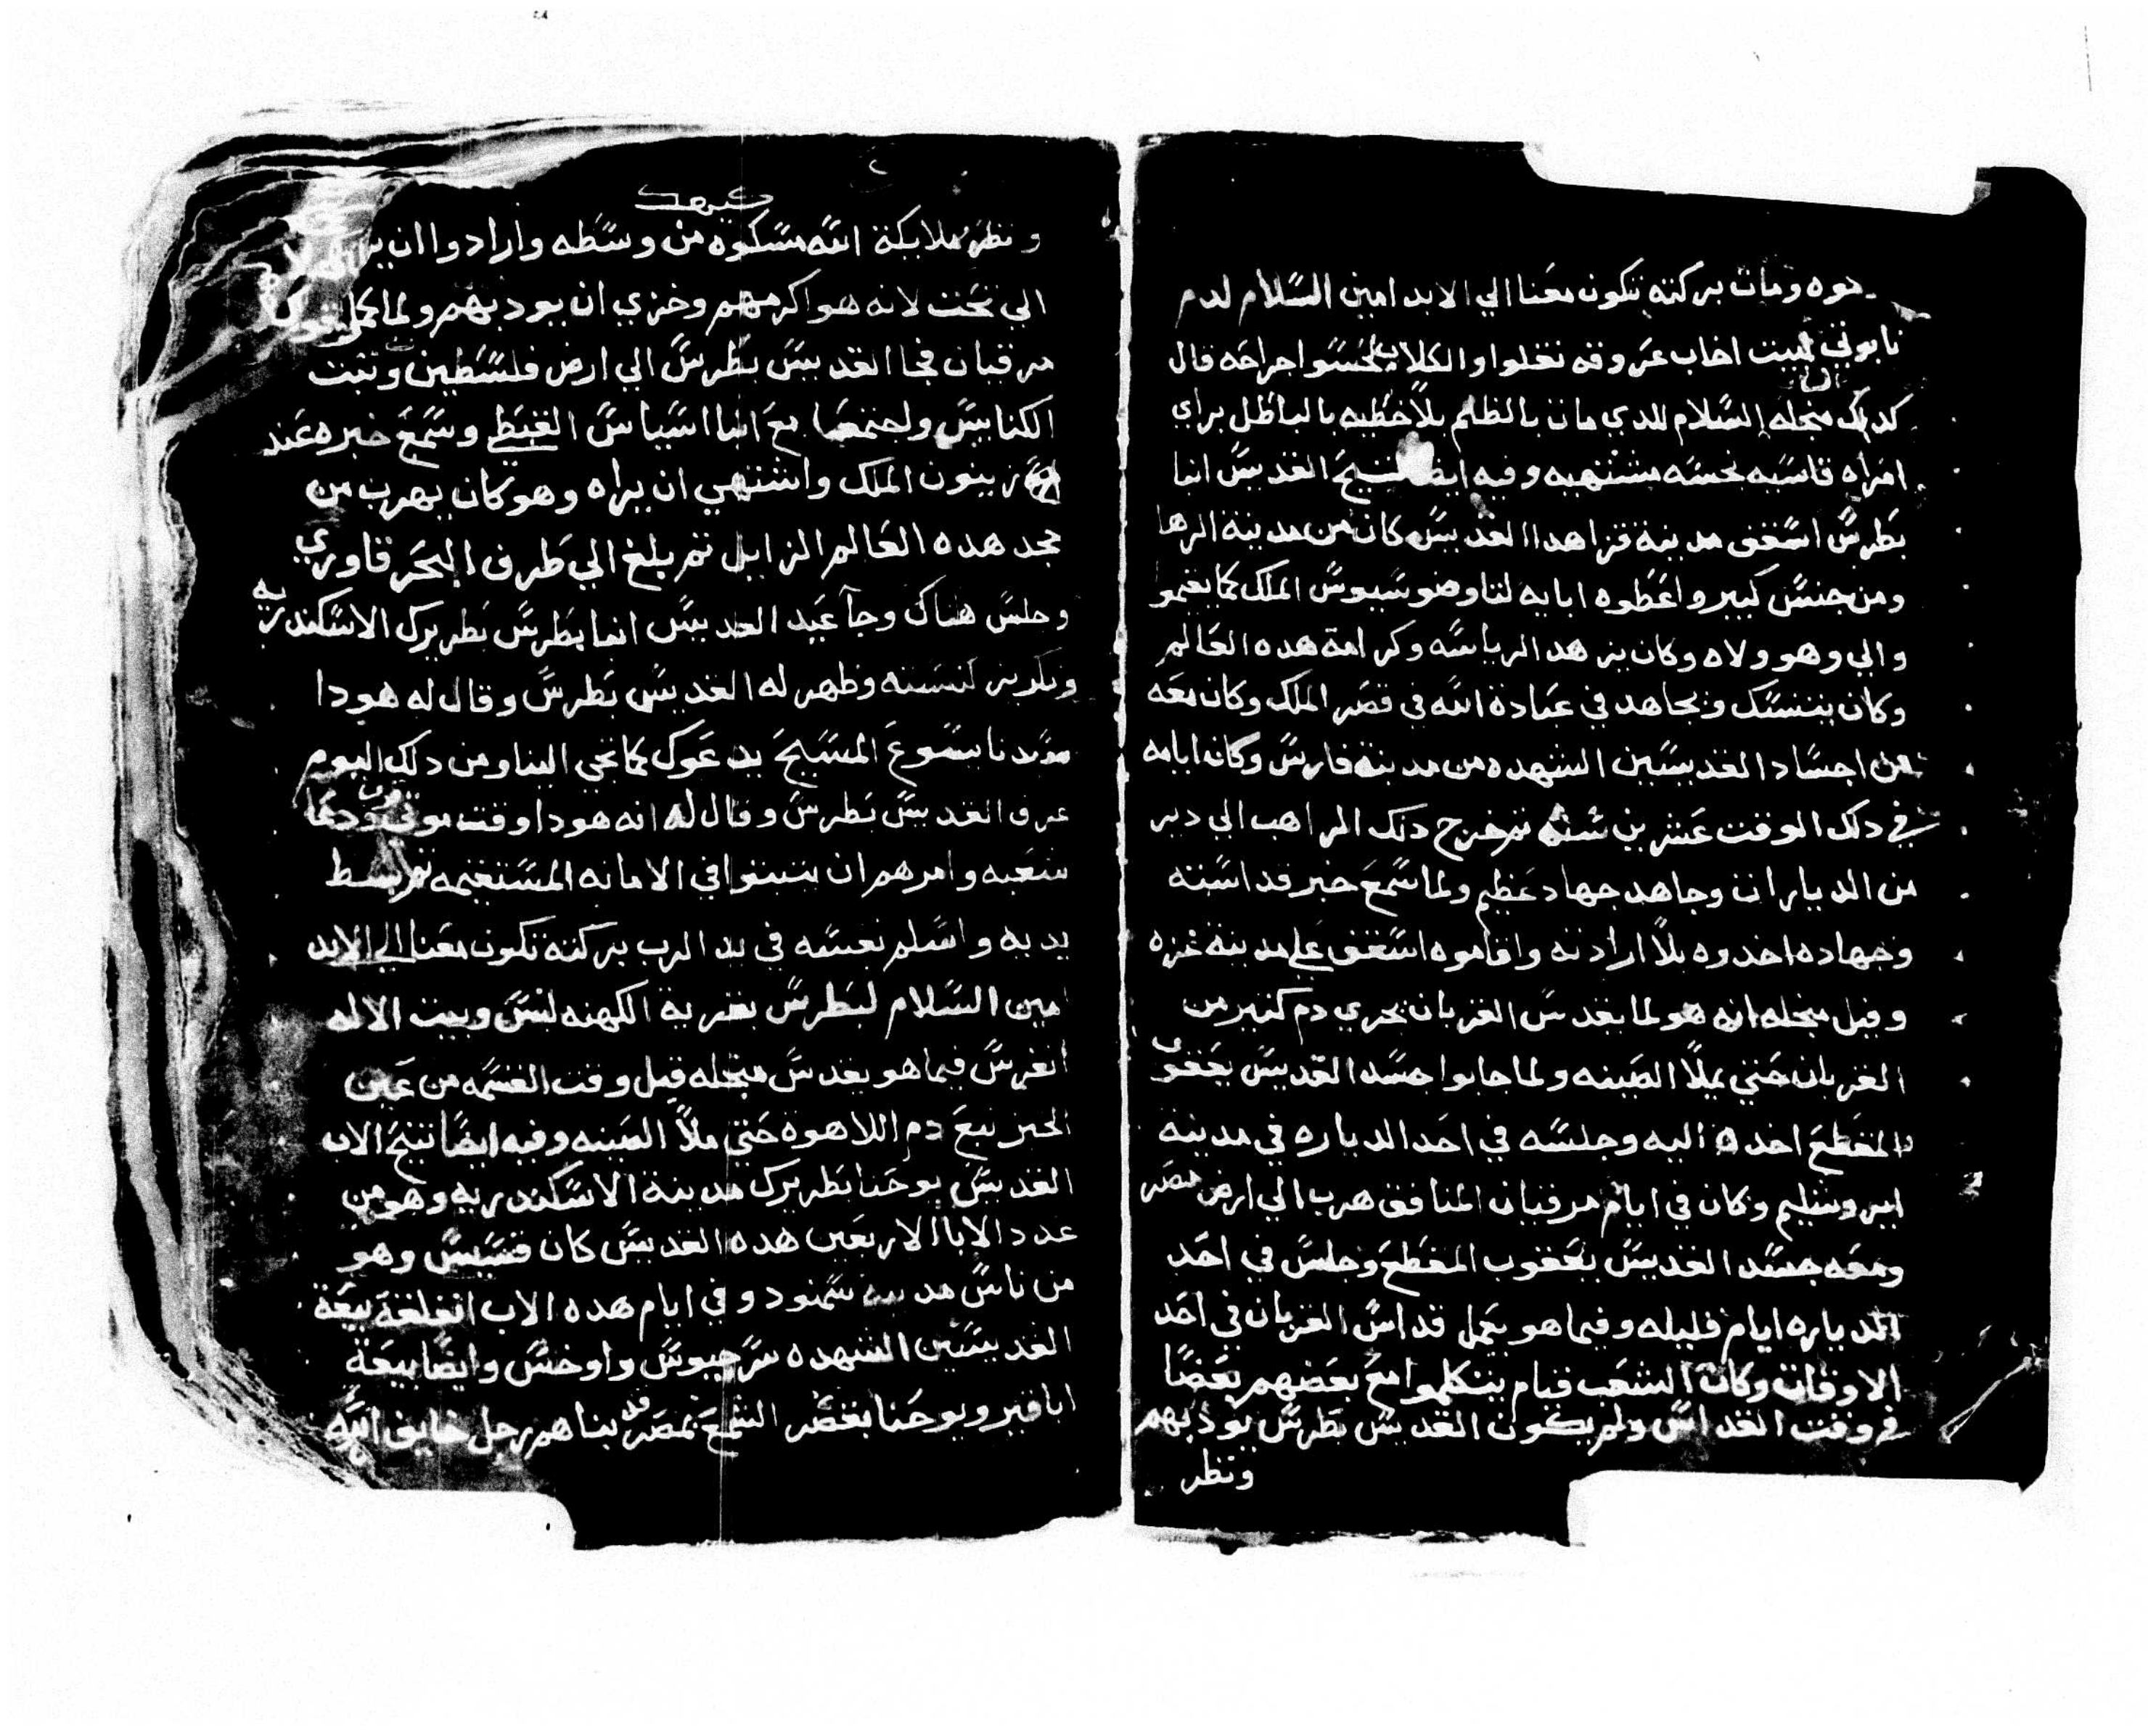 دوه ومات بركته تكون معنا الي الابد امين السلام لدم
نابوتي لبيت اخاب عروقه نغلوا والكلاب لحسوا جراحه قال
كدلك منجله السلام للدي مات بالظلم بلا خطيه بالباطل براي
امراه قاسيه نجسه مشتهيه وفيه ايضا تنيح القديس انبا
بطرس اسقف مدينة غزا هدا القديس كان من مدينة الرها
ومن جنس كبير واعطوه ابايه لتاوضوسيوس الملك كما يقيموا
والي وهو ولاه وكان يزهد الرياسه وكرامة هده العالم
وكان يتنسك ويجاهد في عبادة الله في قصر الملك وكان معه
من اجساد القديسين الشهده من مدينة فارس وكان ايامه
في دلك الوقت عشرين سنه ثم خرج دلك المراهب الي دير
من الديارات وجاهد جهاد عظيم ولما سمع خبر قداسته
وجهاده اخدوه بلا ارادته واقاموه اسقف علي مدينة غزه
وقيل منجله انه هو لما يقدس القربان يجري دم كتير من
القربان حتي يملا الصينه ولما جابوا جسد القديس يعقوب
المقطع اخده اليه وجلسه في احد الدياره في مدينة
ايروشليم وكان في ايام مرقيان المنافق هرب الي ارض مصر
ومعه جسد القديس يعقوب المقطع وجلس في احد
الدياره ايام قليله وفيما هو يعمل قداس القربان في احد
الاوقات وكان الشعب قيام يتكلموا مع بعضهم بعضا
في وقت القداس ولم يكون القديس بطرس يودبهم
ونظر
كيهك
ونظر ملايكة الله مسكوه من وسطه وارادوا ان
الي تحت لانه هو اكرمهم وخزي ان يودبهم ولما
مرقيان فجا القديس بطرس الي ارض فلسطين وثبت
الكنايس واجتمع مع انبا اشياس القبطي وسمع خبره عند
زينون الملك واشتهي ان يراه وهو كان يهرب من
مجد هده العالم الزايل ثم بلغ الي طرف البحر قاوري
وجلس هناك وجا عيد القديس انبا بطرس بطريرك الاسكندريه
وتكريز كنيسته وظهر له القديس بطرس وقال له هودا
سيدنا يسوع المسيح يدعوك كما تجي الينا ومن دلك اليوم
عرف القديس بطرس وقال له انه هودا وقت موتي قرب ودعا
شعبه وامرهم ان يتبتوا في الامانه المستقيمه ثم بسط
يديه واسلم نفسه في يد الرب بركته تكون معنا الي الابد
امين السلام لبطرس بقرية الكهنه لبس وبيت الاله
انغرس فيما هو يقدس منجله قبل وقت القسمه من عين
الخبز نبع دم اللاهوة حتي ملا الصينه وفيه ايضا تنيح الاب
القديس يوحنا بطريرك مدينة الاسكندريه وهو من
عدد الابا الاربعين هده القديس كان قسيس وهو
من ناس مدينة سمنود وفي ايام هده الاب انغلقة بيعة
القديسين الشهده سرجيوس واوخس وايضا بيعة
اباقير ويوحنا بقصر الشمع بمصر قد بناهم رجل خايف الله